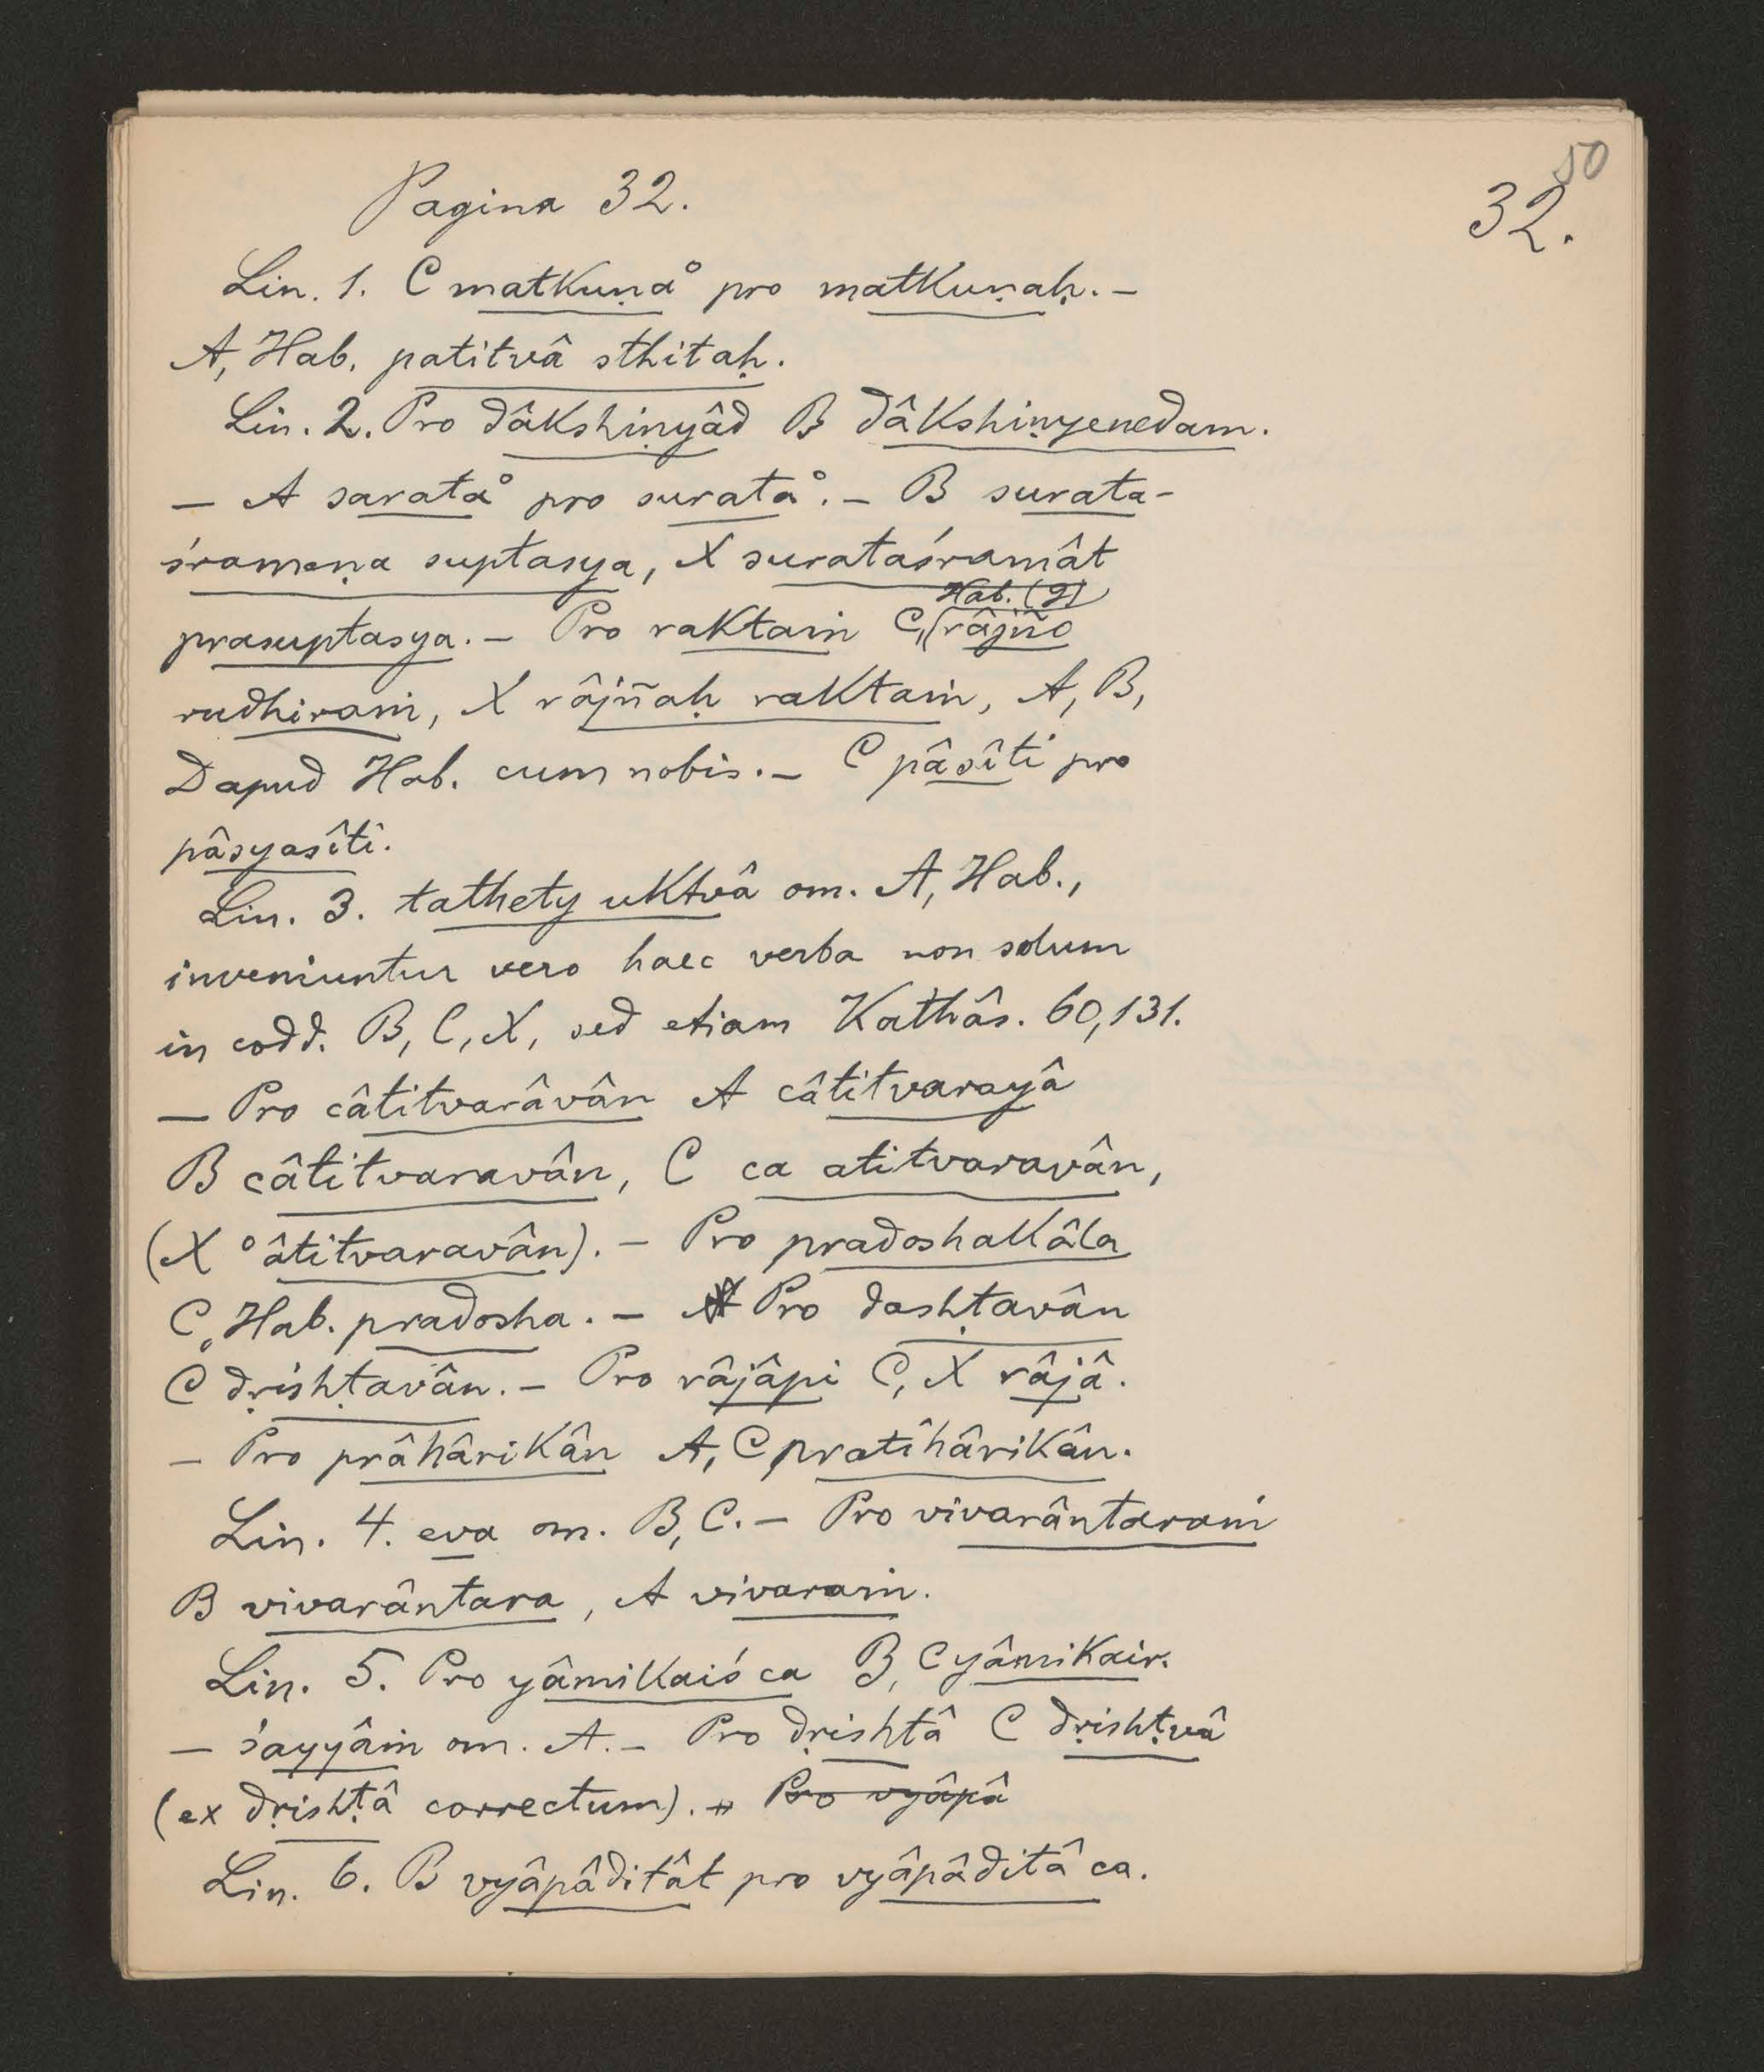 50
Pagina 32.
32.
Lin. 1. C matkuṇa° pro matkuṇaḥ. –
A, Hab. patitvâ sthitaḥ.
Lin. 2. Pro dâkshiṇyâd B dâkshiṇyenedam.
– A sarata° pro surata°. – B surata-
śrameṇa suptasya, X surataśramât
prasuptasya. – Pro raktaṁ C, (Hab. (?) râjño
rudhiraṁ, X râjñaḥ raktaṁ, A, B,
D apud Hab. cum nobis. – C pâsîti pro
pâsyasîti.
Lin. 3. tathety uktvâ om. A, Hab.,
inveniuntur vero haec verba non solum
in codd. B, C, X, sed etiam Kathâs. 60,131.
– Pro câtitvarâvân A câtitvarayâ
B câtitvaravân, C ca atitvaravân,
(X °âtitvaravân). – Pro pradoshakâla
C, Hab. pradosha. – Pro dashṭavân
C dṛishṭavân. – Pro râjâpi C, X râjâ.
– Pro prâhârikân A, C pratîhârikân.
Lin. 4. eva om. B, C. – Pro vivarântaraṁ
B vivarântara, A vivaraṁ.
Lin. 5. Pro yâmikaiś ca B, C yâmikair.
– śayyâṁ om. A. – Pro dṛishtâ C dṛishṭvâ
(ex dṛishṭâ correctum). – Pro vyâpâ
Lin. 6. B vyâpâditât pro vyâpâditâ ca.